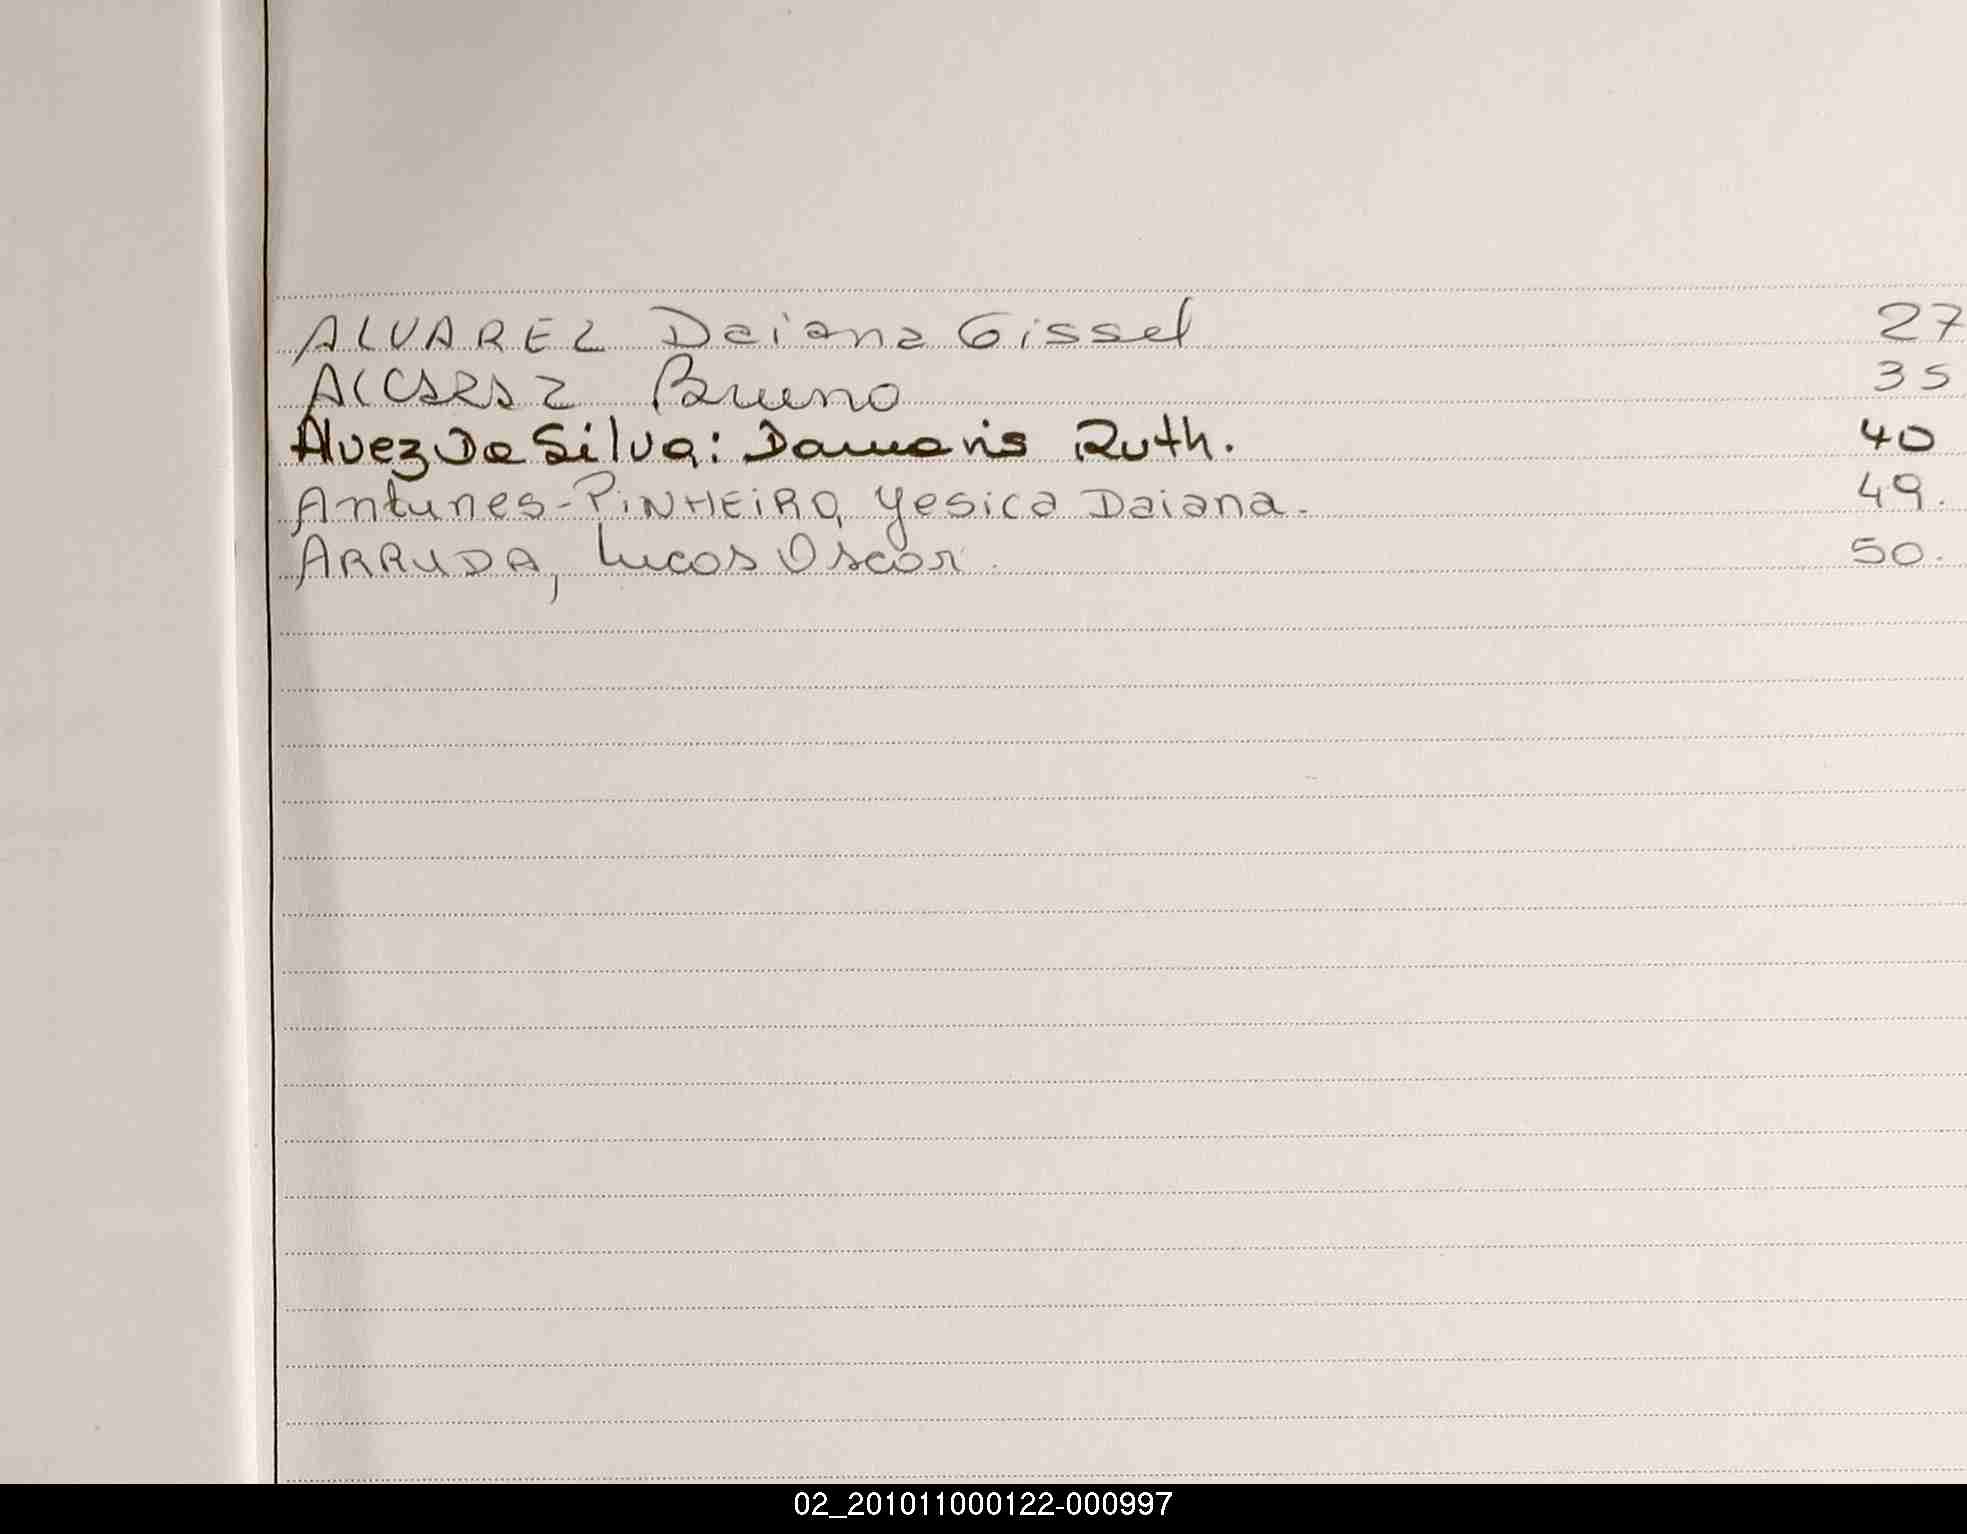 ALVAREZ Daiana Gissel 27
Bruno 35
Alvez Da Silva: Damaris Ruth. 40
Antunes-PINHEIRO, Yesica Daiana. 49.
ARRUDA, Lucas Oscar. 50.
02_201011000122-000997